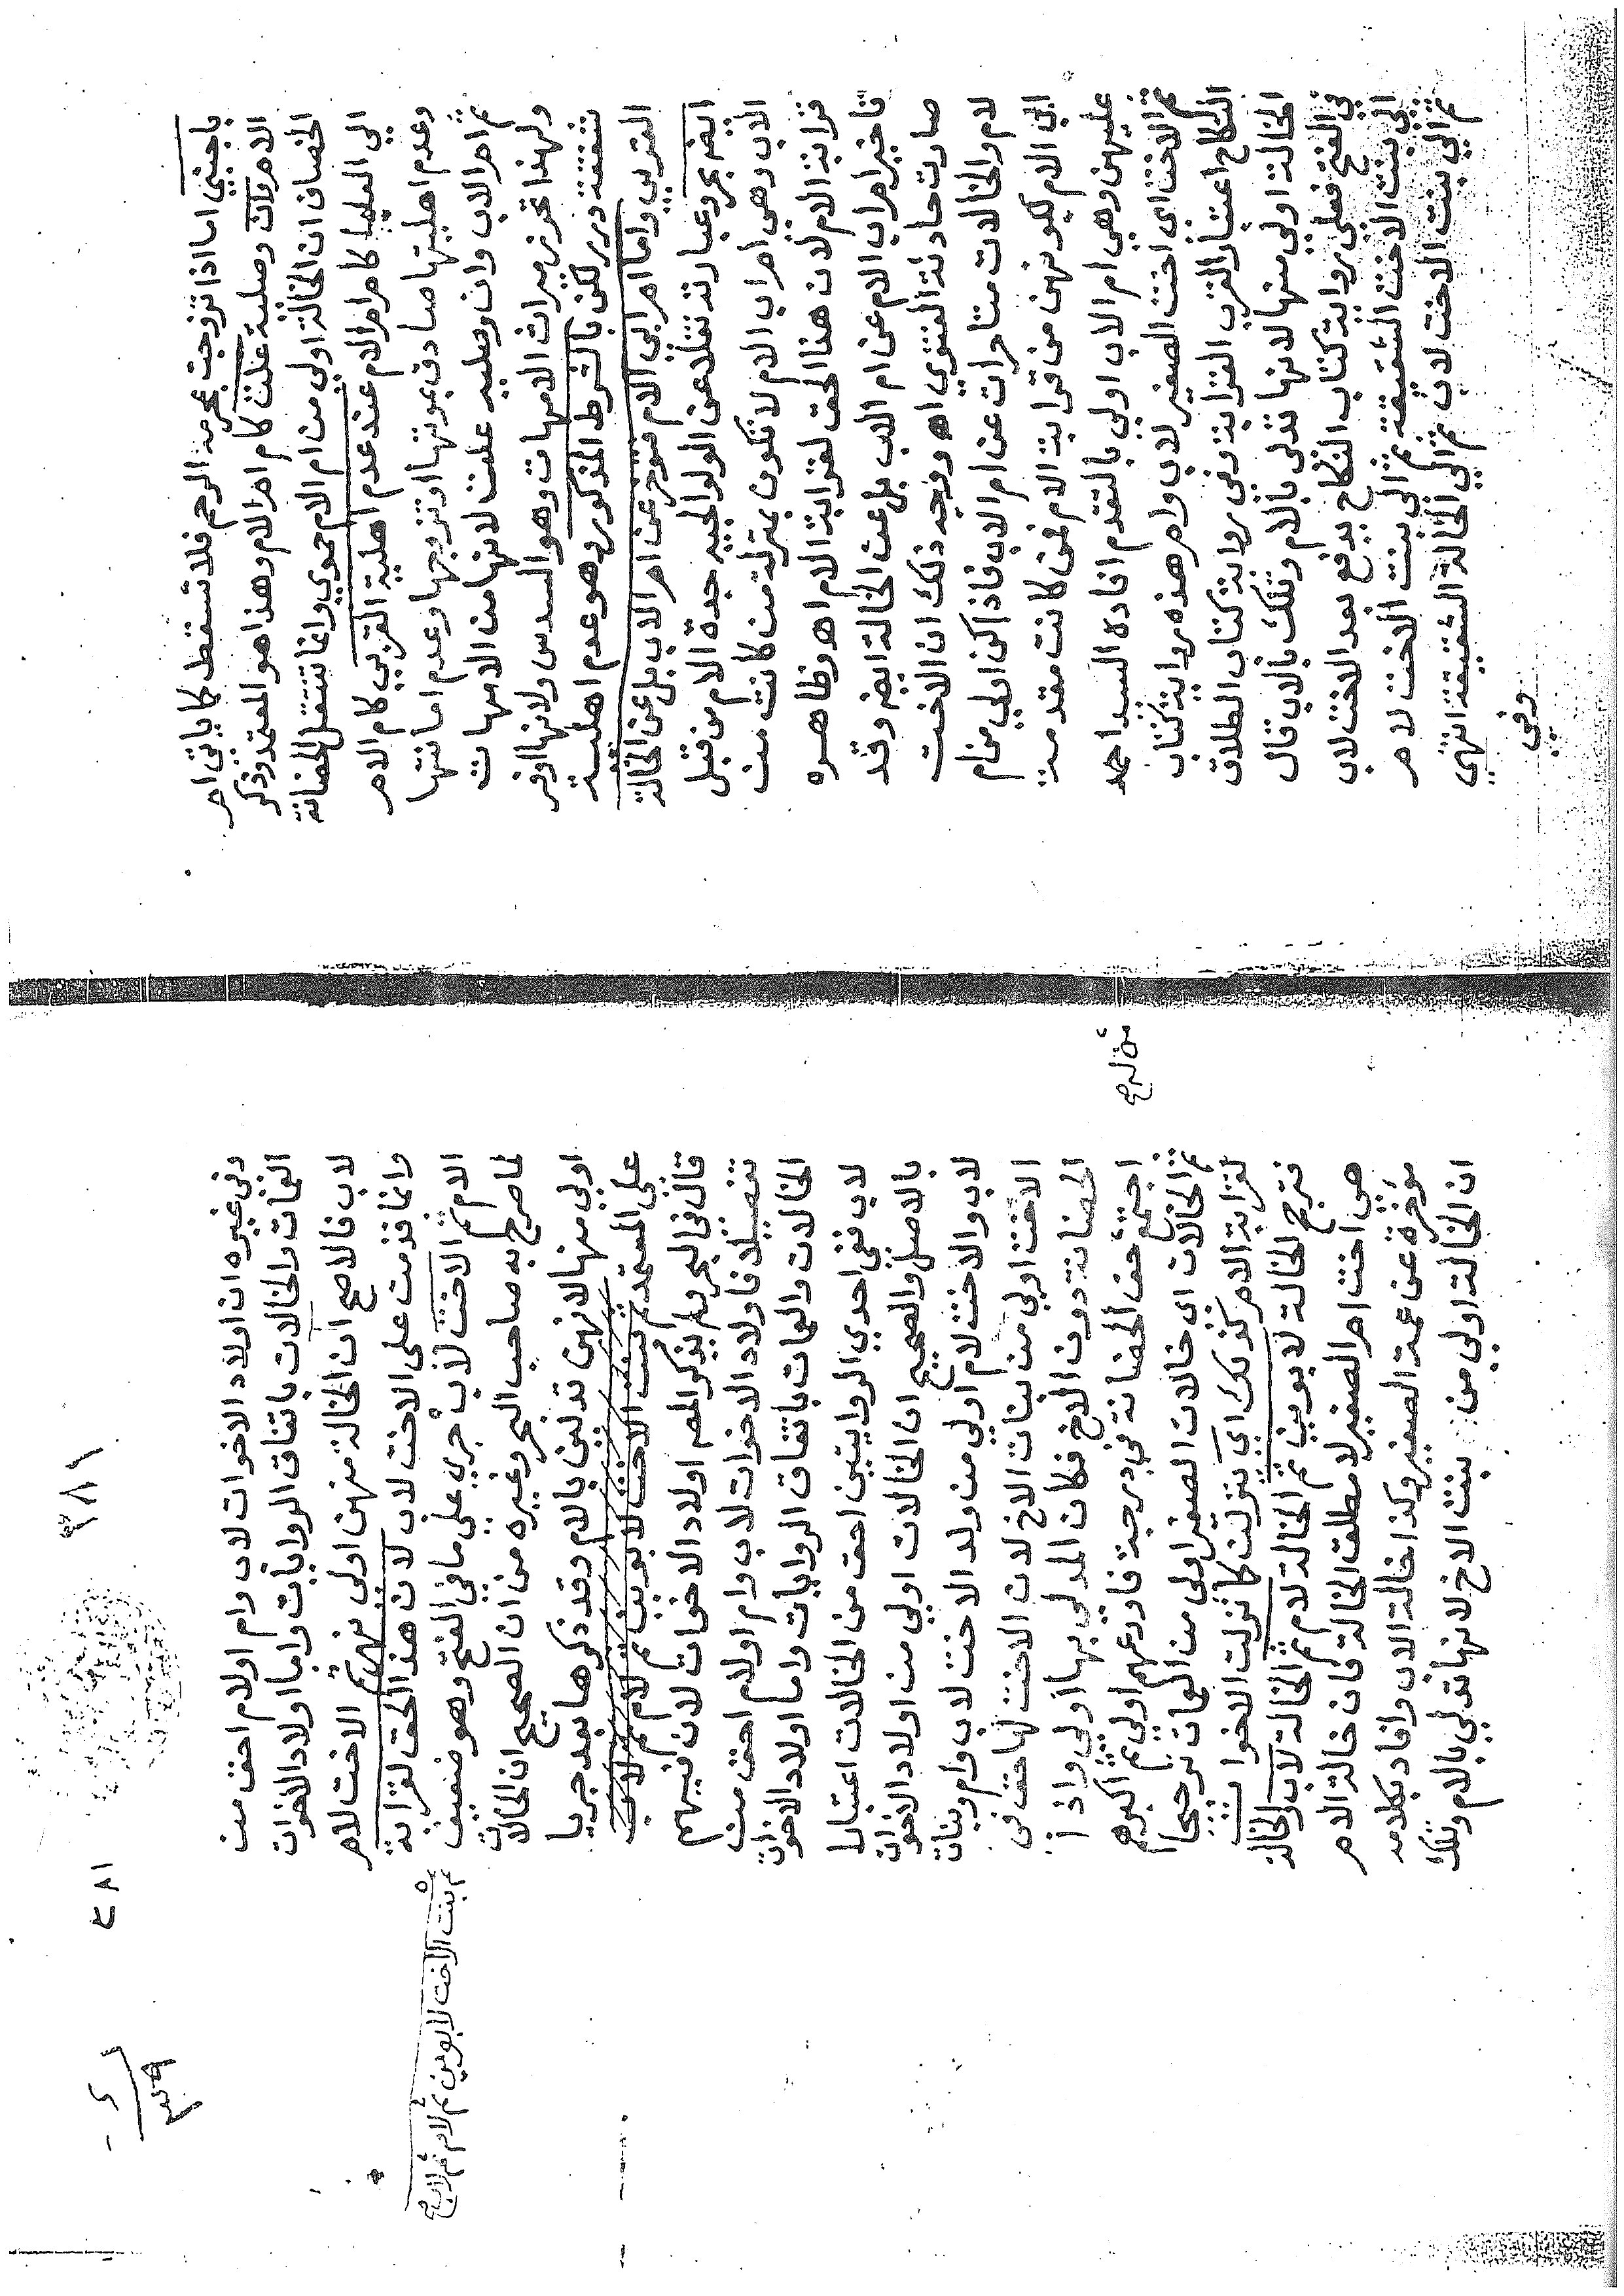 باجنبي اما اذا تزوجت بمحرمه الرحم فلا تسقط كما ياتي ام
الام وان وصلية علت كام ام الام وهذا هو المعتمد وذكر
الخصاف ان الخالة اولى من ام الام حموي وانما تنتقل الحضانة
الي العليا كام ام الام عند عدم اهلية القربي كام الام
وعدم اهليتها صادق بموتها او تزوجها وعدم امانتها
ثم ام الاب وان وصليه علت لانها من الامهات
ولهذا تحرز ميراث الامهات وهو السدس ولانها اوفر
شفقة درر لكن بالشرط المذكور وهو عدم اهلية
القربي واما ام ابي الام فتوخر عن ام الاب بل عن الخالة
ايضه بحر وعبارته نقلا عن الولوالجيه جدة الام من قبل
الاب وهي ام اب الام لا تكون بمنزلة من كانت من
قرابة الام لان هذا الحق لقرابة الام اه وظاهره
تاخير ام اب الام عن ام الاب بل عن الخالة ايضه وقد
صارت حادثة الفتوي اه ووجه ذلك ان الاخت
لام والخالات متاخرات عن ام الاب فاذا كن اولي من ام
ابي الام لكونهن من قرابة الام فمن كانت مقدمة
عليهن وهي ام الاب اولي بالتقدم افاده السيد احمد
ثم الاخت اي اخت الصغير لاب وام هذه رواية كتاب
النكاح اعتبارا لقرب القرابة وفي رواية كتاب الطلاق
الخالة اولي منها لانها تدلي بالام وتلك بالاب قال
في الفتح فعلي رواية كتاب النكاح يدفع بعد الاخت لاب
الي بنت الاخت الشقيقة ثم الي بنت الاخت لام
ثم الي بنت الاخت لاب ثم الي الخالة الشقيقة انتهي
وفي
٣٨١
٢٨١
وفي غيره ان اولاد الاخوات لاب وام او لام احق من
العمات والخالات باتفاق الروايات واما اولاد الاخوات
لاب فالاصح ان الخالة منهن اولي نهر ثم الاخت لام
وانما قدمت على الاخت لاب لان هذا الحق لقرابة
الام ثم الاخت لاب جري علي ما في الفتح وهو ضعيف
لما صرح به صاحب البحر وغيره من ان الصحيح ان الخالات
اولي منها لانهن تدلين بالام وقد ذكرها بعد جريا
على المعتمد ثم بنت الاخت لابوين ثم لام ثم لاب
قال في البحر ولم يذكر المص اولاد الاخوات لان فيهم
تفصيلا فاولاد الاخوات لاب وام او لام احق من
الخالات والعمات باتفاق الروايات واما اولاد الاخوات
لاب ففي احدي الروايتين احق من الخالات اعتبارا
بالاصل والصحيح ان الخالات اولي من اولاد الاخوات
لاب والاخت لام اولي من ولد الاخت لاب وام وبنات
الاخت اولي من بنات الاخ لان الاخت لها حق في
الحضانة دون الاخ فكان المدلي بها اولي واذا
اجتمع من له حق الحضانة في درجة فاورعهم اولي ثم اكبرهم
ثم الخالات اي خالات الصغير اولي من العمات ترجيحا
لقرابة الام كذلك اي نزلت كما نزلت الاخوات
فترجح الخالة لابوين ثم الخالة لام ثم الخالة لاب والخالة
هي اخت ام الصغير لا مطلق الخالة فان خالة الام
مؤخرة عن عمة الصغير وكذا خالة الاب وافاد بكلامه
ان الخالة اولي من بنت الاخ لانها تدلي بالام وتلك
ثم بنت الاخت لابوين ثم لام ثم لاب صح